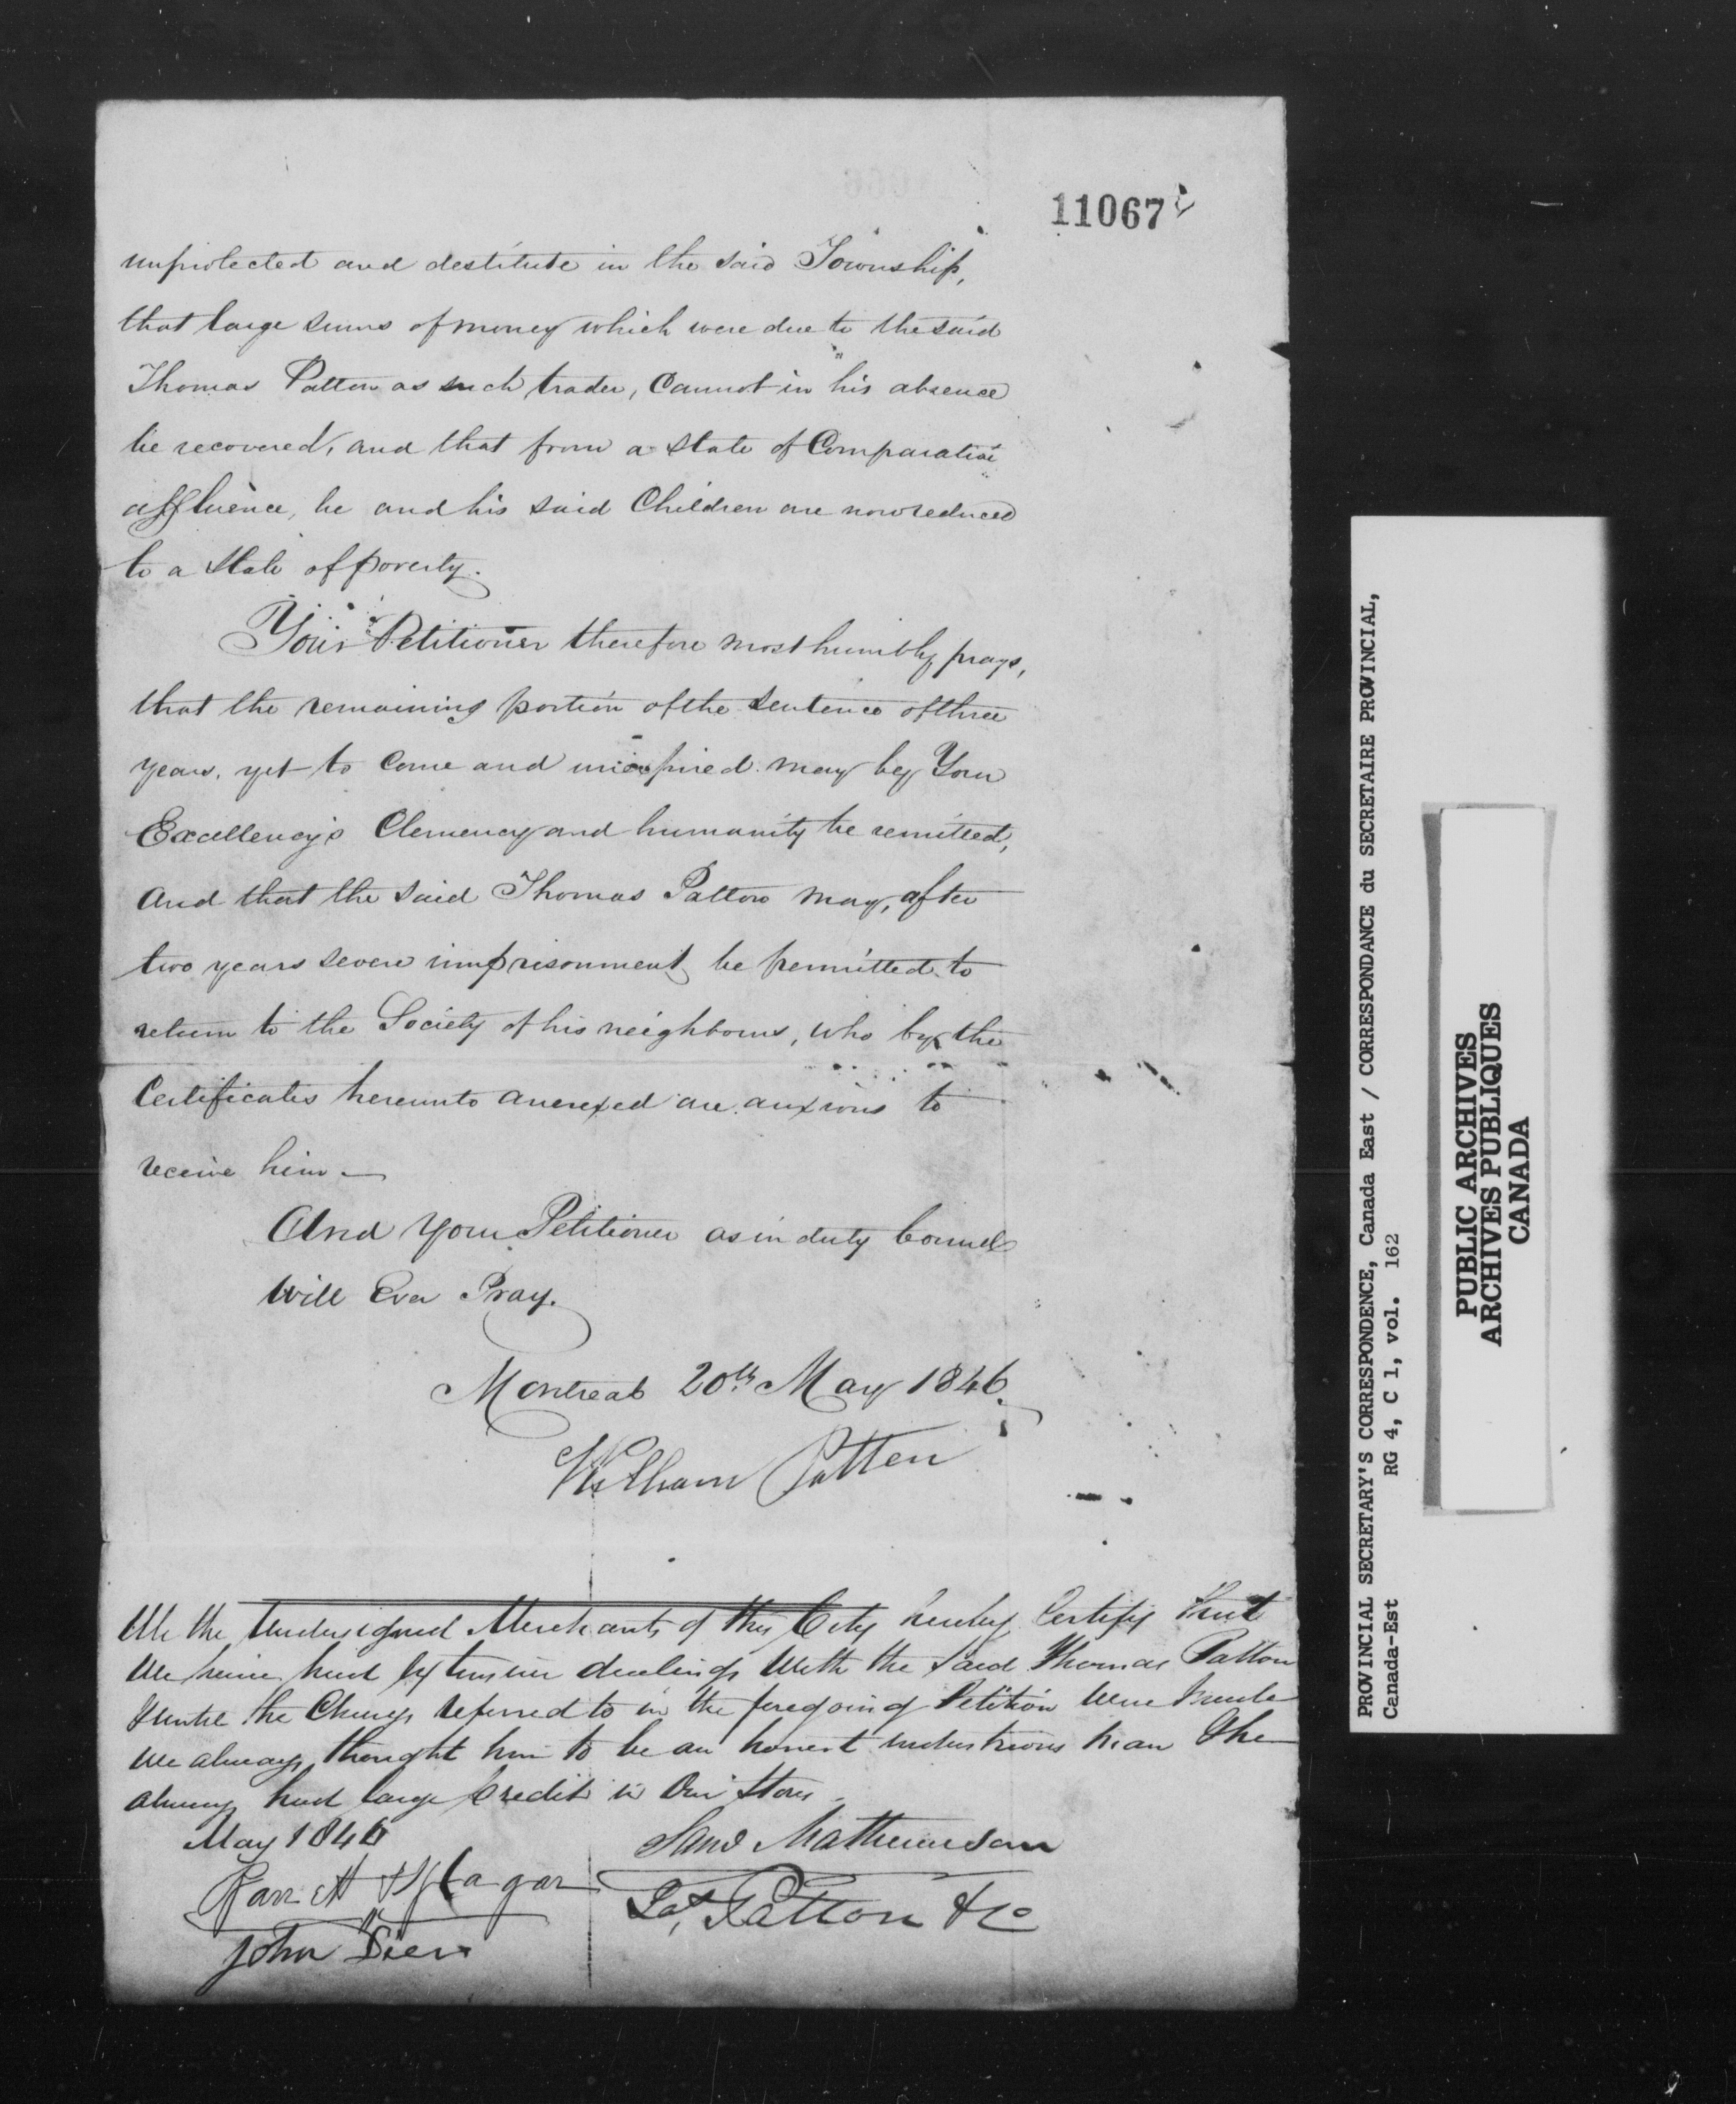 11067
unprotected and destitute in the said Township,
that large sums of money which were due to the said
Thomas Patton as such trader, Cannot in his absence
be recovered, and that from a state of Comparative
affluence, he and his said Children are now reduced
to a State of poverty.
Your Petitioner therefore most humbly prays,
that the remaining portion of the Sentence of three
years, yet to Come and unexpired may by Your
Excellency's Clemency and humanity be remitted,
And that the said Thomas Patton may, after
two years severe imprisonment, be permitted to
return to the Society of his neighbours, who by the
Certificates hereunto annexed are anxious to
receive him —
And Your Petitioner as in duty bound
Will Ever Pray.
Montreal 20th May 1846.
William Patten
We the Undersigned Merchants of this City hereby Certify that
We have had Extensive dealings With the said Thomas Patton
& until the Charges referred to in the foregoing Petition were made
we always thought him to be an honest industrious man & he
always had large Credit in Our Stores.
May 1846
John
Patton & Co
PROVINCIAL SECRETARY'S CORRESPONDENCE, Canada East / CORRESPONDANCE du SECRETAIRE PROVINCIAL,
Canada-Est RG 4, C 1, vol. 162
PUBLIC ARCHIVES
ARCHIVES PUBLIQUES
CANADA